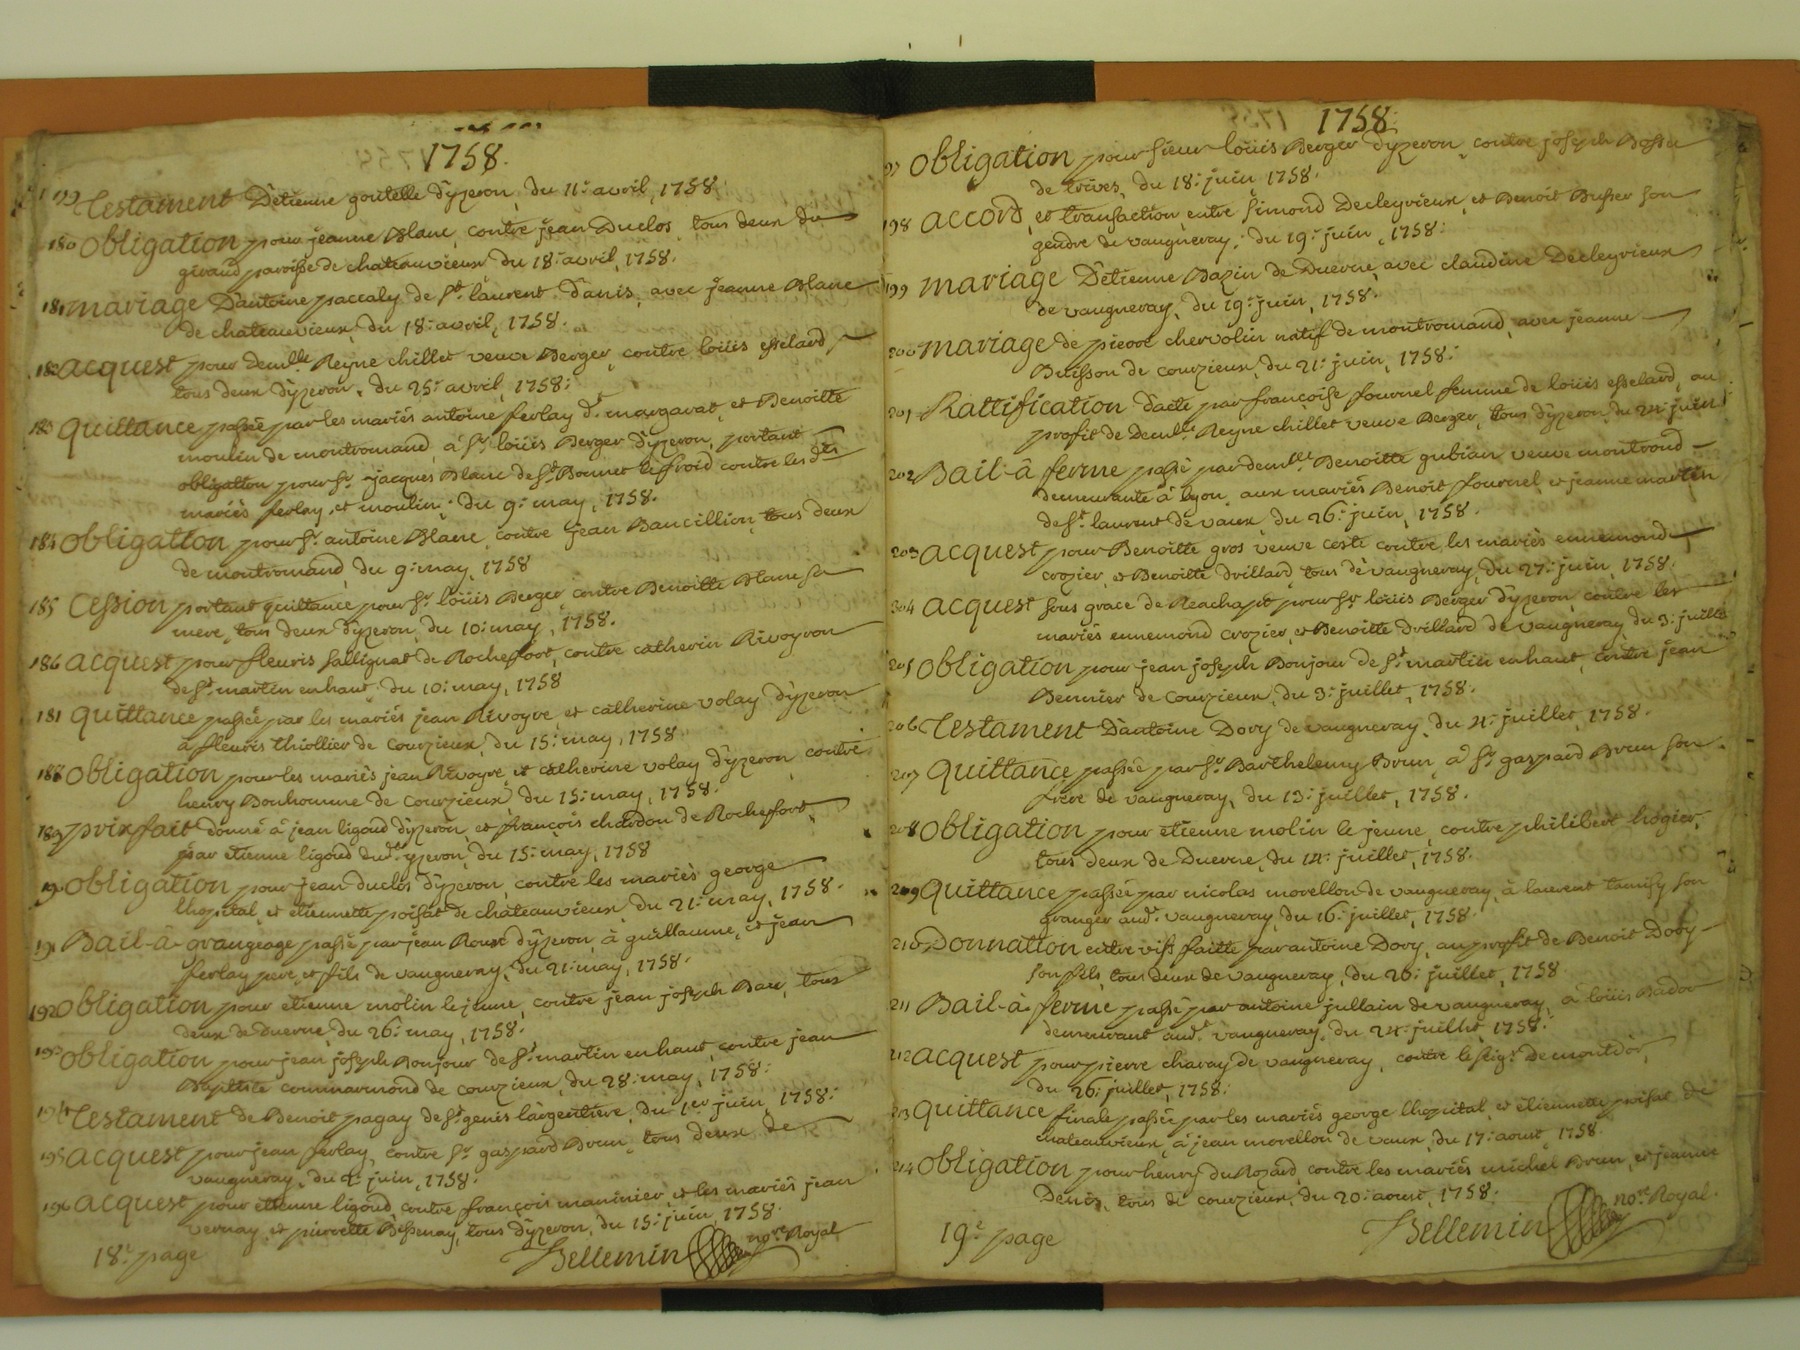 1758.
179 Testament D'etienne goutelle d'yzeron, du 11: avril, 1758.
180 obligation pour jeanne Blanc, contre jean Duclos, tous deux du
giraud paroisse de chateauvieux du 18: avril, 1758.
181 mariage D'antoine paccaly de St. laurent d'anis, avec jeanne Blanc
de chateauvieux, du 18: avril, 1758.
182 acquest pour demlle. Reyne chillet veuve Berger, contre loüis esselard,
tous deux d'yzeron, du 25: avril, 1758:
183 quittance passée par les mariés antoine ferlay dt. margarat, et Benoitte
moulin de montromand à Sr. loüis Berger d'yzeron, portant
obligation pour Sr. jacques Blanc de St. Bonnet le froid contre les dts
mariés ferlay, et moulin; du 9: may, 1758.
184 obligation pour Sr. antoine Blanc, contre jean Bancillion, tous deux
de montromand, du 9: may, 1758
185 Cession portant quittance pour Sr. loüis Berger, contre Benoitte Blanc sa
mere, tous deux d'yzeron, du 10: may, 1758.
186 acquest pour fleuris sallignat de Rochefort, contre catherin Rivoyron
de St. martin en haut, du 10: may, 1758
181 quittance passée par les mariés jean Rivoyre, et catherine volay d'yzeron
à fleuris thiollier de courzieux, du 15: may, 1758
188 obligation pour les mariés jean Rivoyre, et catherine volay d'yzeron, contre
henry Bonhomme de Courzieux, du 15: may, 1758.
189 prix fait donné à jean ligoud d'yzeron, et françois chardon de Rochefort,
par etienne ligoud dud. yzeron, du 15: may, 1758
190 obligation pour jean duclos d'yzeron, contre les mariés george
lhopital, et etiennette poisat de chateauvieux, du 21: may, 1758.
191 Bail-à-grangeage passé par jean Roux d'yzeron, à guillaume, et jean
ferlay pere, et fils de vaugneray, du 21: may, 1758.
192 obligation pour etienne molin le jeune, contre jean joseph Bau, tous
deux de Duerne, du 26: may, 1758.
193 obligation pour jean joseph Bonjour de St. martin en haut, contre jean
Baptiste commarmond de courzieux, du 28: may, 1758:
194 Testament de Benoit pagay de St. genis l'argentière, du 1er juin, 1758:
195 acquest pour jean ferlay, contre Sr. gaspard Brun, tous deux de
vaugneray, du juin, 1758.
196 acquest pour etienne ligoud, contre françois maninier, et les mariés jean
vernay, et pierrette Bessenay, tous d'yzeron, du 15: juin, 1758.
18e. page
Bellemin nore. Royal
1758.
97 obligation pour sieur loüis Berger d'yzeron, contre joseph Bossu
de trives, du 18: juin, 1758.
198 accord, et transaction entre simond Decleyrieux, et Benoit Busser son
gendre de vaugneray, du 19: juin, 1758:
199 mariage D'etienne Bazin de Duerne, avec claudine Decleyrieux
de vaugneray, du 19: juin, 1758.
200 mariage de pierre chervolin natif de montromand, avec jeanne
Buisson de courzieux, du 21: juin, 1758:
201 Rattification d'acte par françoise fournel femme de loüis esselard, au
profit de demlle. Reyne chillet veuve Berger, tous d'yzeron, du 24: juin
202 Bail-à ferme passé par demlle. Benoitte gubian veuve montrond
demeurante à lyon, aux mariés Benoit fournel, et jeanne martin
de St. laurent de vaux, du 26: juin, 1758.
203 acquest pour Benoitte gros veuve coste contre les mariés ennemond
crozier, et Benoitte Drillard, tous de vaugneray, du 27: juin, 1758.
304 acquest sous grace de Reachapt pour Sr. loüis Berger d'yzeron, contre les
mariés ennemond crozier, et Benoitte Drillard de vaugneray, du 3: juillet
205 obligation pour jean joseph Bonjour de St. martin en haut, contre jean
Bennier de Courzieux, du 3: juillet, 1758.
206 Testament D'antoine Dory de vaugneray, du 4: juillet, 1758.
207 Quittance passée par Sr. Barthelemy Brun, à Sr. gaspard Brun son
frere de vaugneray, du 13: juillet, 1758.
208 obligation pour etienne molin le jeune, contre philibert hogier,
tous deux de Duerne, du 14: juillet, 1758.
209 quittance passée par nicolas morellon de vaugneray, à laurent tamisy son
granger aud. vaugneray, du 16: juillet, 1758.
210 Donnation entre vifs faitte par antoine Dory, au profit de Benoit Dory
son fils, tous deux de vaugneray, du 20: juillet, 1758
211 Bail-à-ferme passé par antoine jullain de vaugneray, à loüis Bador
demeurant aud. vaugneray, du 24: juillet, 1758.
212 acquest pour pierre charay de vaugneray, contre le seigr. De montd'or,
du 26: juillet, 1758:
213 quittance finale passée par les mariés george lhopital, et etiennette poisat de
chateauvieux, à jean morellon de vaux, du 17: aoust, 1758
214 obligation pour henry du Rozard, contre les mariés michel Brun, et jeanne
Denis, tous de courzieux, du 20: aoust, 1758.
19e. page
Bellemin nore. Royal.